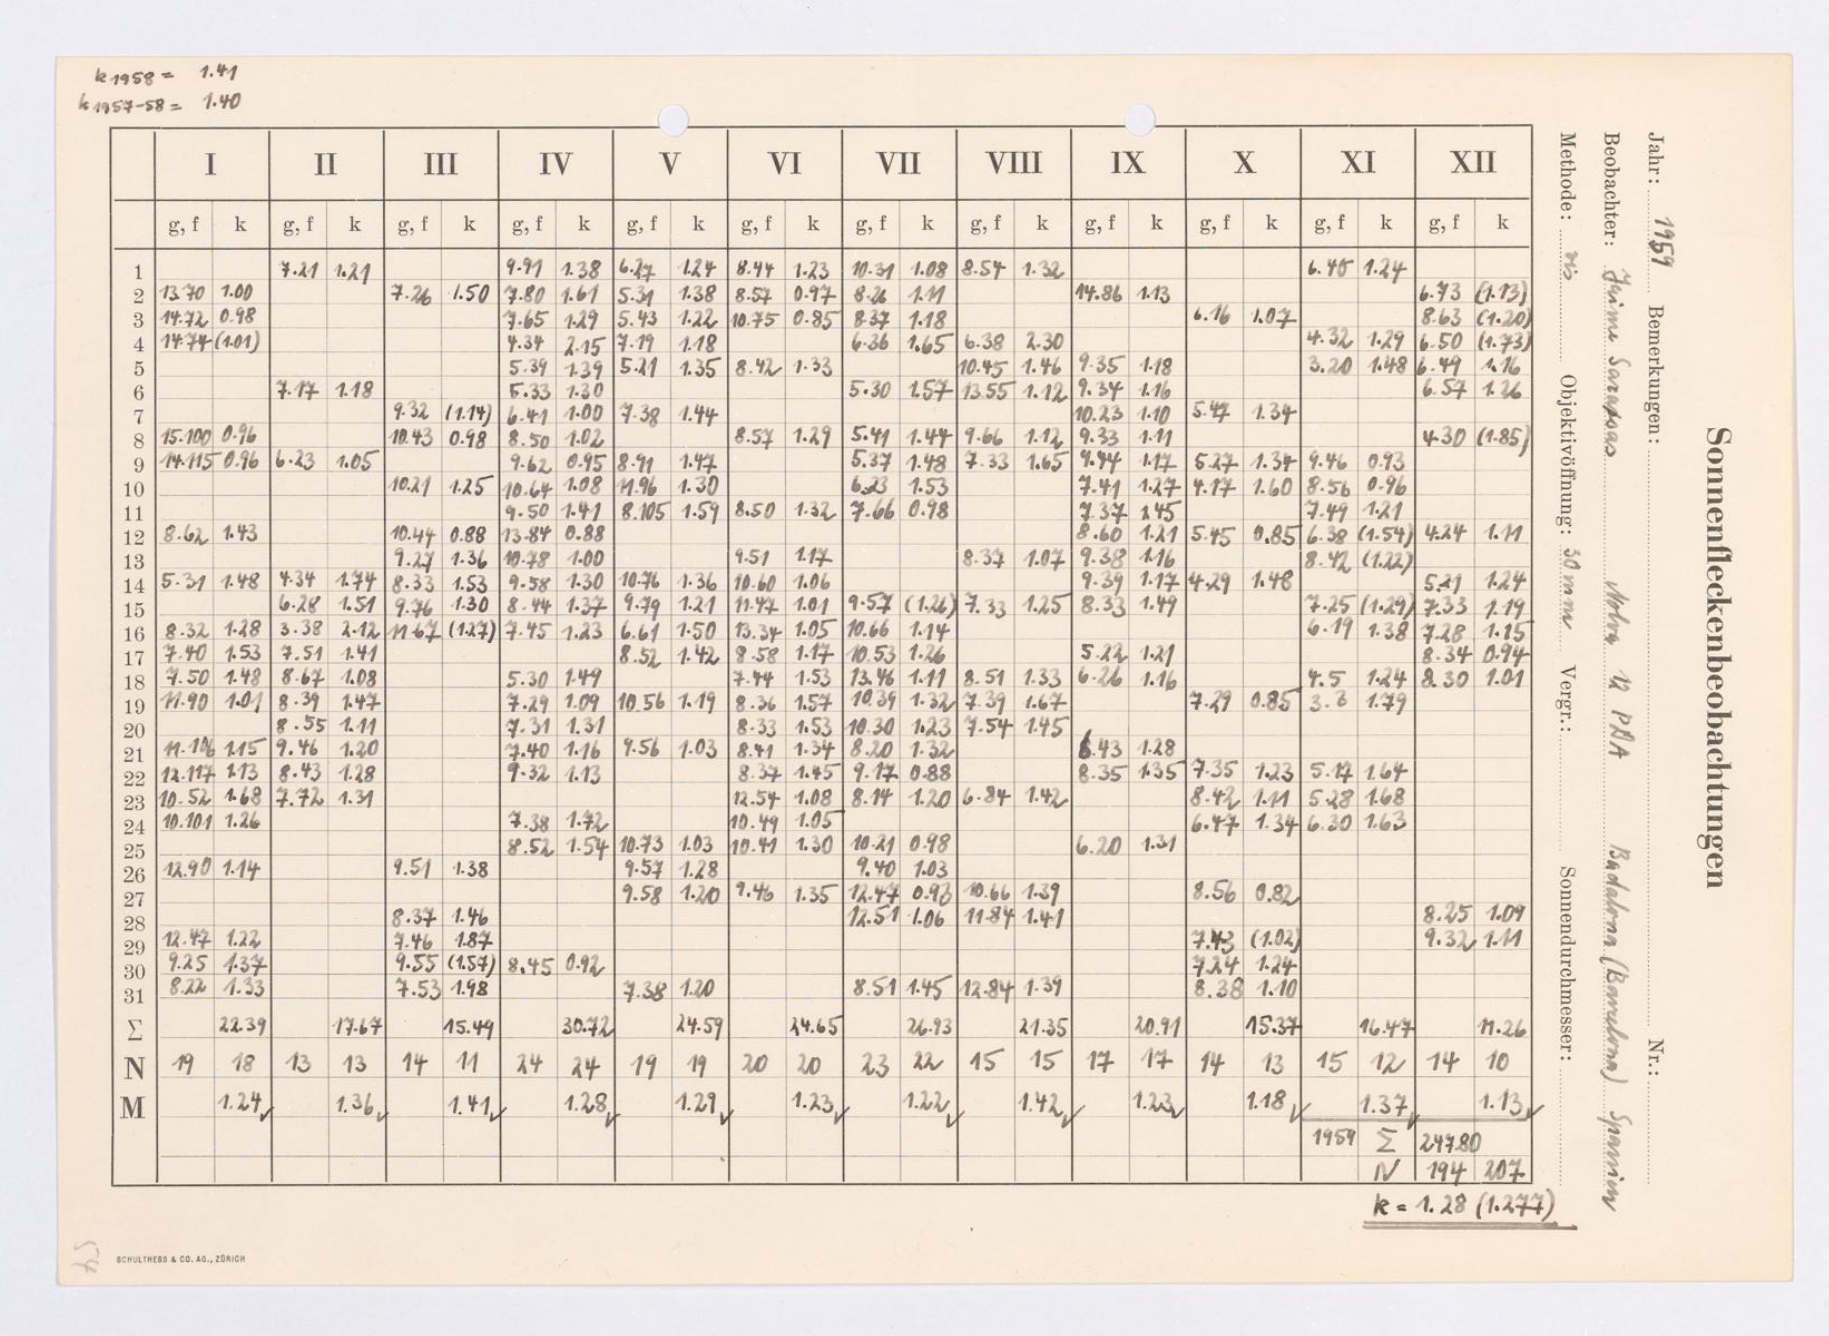 k 1958 = 1.41
k 1957-58 = 1.40
Sonnenfleckenbeobachtungen
Jahr: 1959 Bemerkungen: Nr.:
Beobachter: Jaime 12 PRA Badalona (Barcelona) Spanien
Methode: vis Objektivöffnung: 30 mm Vergr.: Sonnendurchmesser:
I II III IV V VI VII VIII IX X XI XII
g, f k g, f k g, f k g, f k g, f k g, f k g, f k g, f k g, f k g, f k g, f k g, f k
1 7.21 1.21 9.91 1.38 6.27 1.24 8.44 1.23 10.31 1.08 8.54 1.32 6.45 1.24
2 13.70 1.00 7.26 1.50 7.80 1.61 5.31 1.38 8.57 0.97 8.26 1.11 14.86 1.13 6.73 (1.13)
3 14.72 0.98 7.65 1.29 5.43 1.22 10.75 0.85 8.37 1.18 6.16 1.07 8.63 (1.20)
4 14.74 (1.01) 4.34 2.15 7.19 1.18 6.36 1.65 6.38 2.30 4.32 1.29 6.50 (1.73)
5 5.39 1.39 5.21 1.35 8.42 1.33 10.45 1.46 9.35 1.18 3.20 1.48 6.49 1.16
6 7.17 1.18 5.33 1.30 5.30 1.57 13.55 1.12 9.34 1.16 6.57 1.26
7 9.32 (1.14) 6.41 1.00 7.38 1.44 10.23 1.10 5.47 1.34
8 15.100 0.96 10.43 0.98 8.50 1.02 8.57 1.29 5.41 1.44 9.66 1.12 9.33 1.11 4.30 (1.85)
9 14.115 0.96 6.23 1.05 9.62 0.95 8.91 1.47 5.37 1.48 7.33 1.65 9.44 1.17 5.27 1.34 9.46 0.93
10 10.21 1.25 10.64 1.08 11.96 1.30 6.23 1.53 7.41 1.27 4.17 1.60 8.56 0.96
11 9.50 1.41 8.105 1.59 8.50 1.32 7.66 0.98 7.37 1.45 7.49 1.21
12 8.62 1.43 10.44 0.88 13.84 0.88 8.60 1.21 5.45 0.85 6.38 (1.54) 4.24 1.11
13 9.27 1.36 10.78 1.00 9.51 1.17 8.37 1.07 9.38 1.16 8.42 (1.22)
14 5.31 1.48 4.34 1.74 8.33 1.53 9.58 1.30 10.76 1.36 10.60 1.06 9.39 1.17 4.29 1.48 5.21 1.24
15 6.28 1.51 9.76 1.30 8.44 1.37 9.79 1.21 11.47 1.01 9.57 (1.26) 7.33 1.25 8.33 1.49 7.25 (1.29) 7.33 1.19
16 8.32 1.28 3.38 2.12 11.67 (1.27) 7.45 1.23 6.61 1.50 13.34 1.05 10.66 1.14 6.19 1.38 7.28 1.15
17 7.40 1.53 7.51 1.41 8.52 1.42 8.58 1.17 10.53 1.26 5.22 1.21 8.34 0.94
18 7.50 1.48 8.67 1.08 5.30 1.49 7.44 1.53 13.46 1.11 8.51 1.33 6.26 1.16 4.5 1.24 8.30 1.01
19 11.90 1.01 8.39 1.47 7.29 1.09 10.56 1.19 8.36 1.57 10.39 1.32 7.39 1.67 7.29 0.85 3.8 1.79
20 8.55 1.11 7.31 1.31 8.33 1.53 10.30 1.23 7.54 1.45
21 11.106 1.15 9.46 1.20 7.40 1.16 9.56 1.03 8.41 1.34 8.20 1.32 6.43 1.28
22 12.117 1.13 8.43 1.28 9.32 1.13 8.37 1.45 9.17 0.88 8.35 1.35 7.35 1.23 5.17 1.64
23 10.52 1.68 7.72 1.31 12.54 1.08 8.14 1.20 6.84 1.42 8.42 1.11 5.28 1.68
24 10.101 1.26 7.38 1.72 10.49 1.05 6.47 1.34 6.30 1.63
25 8.52 1.54 10.73 1.03 10.41 1.30 10.21 0.98 6.20 1.31
26 12.90 1.14 9.51 1.38 9.57 1.28 9.40 1.03
27 9.58 1.20 9.46 1.35 12.47 0.93 10.66 1.39 8.56 0.82
28 8.37 1.46 12.51 1.06 11.84 1.41 8.25 1.09
29 12.47 1.22 7.46 1.87 7.43 (1.02) 9.32 1.11
30 9.25 1.37 9.55 (1.57) 8.45 0.92 7.24 1.24
31 8.22 1.33 7.53 1.98 7.38 1.20 8.51 1.45 12.84 1.39 8.38 1.10
Σ 22.39 17.67 15.49 30.72 24.59 24.65 26.93 21.35 20.91 15.37 16.47 11.26
N 19 18 13 13 14 11 24 24 19 19 20 20 23 22 15 15 17 17 14 13 15 12 14 10
M 1.24 1.36 1.41 1.28 1.29 1.23 1.22 1.42 1.23 1.18 1.37 1.13
1959 Σ 247.80
N 194 207
k = 1.28 (1.277)
SCHULTHESS & CO. AG., ZÜRICH